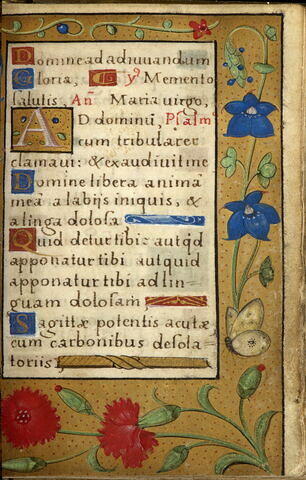 Domine ad adiuuandum
Gloria, ℟ ℣ Memento
salutis, Añ Maria virgo,
AD dominū, Psalm
cum tribularer
clamaui: & exaudiuit me
Domine libera animā
mea a labijs iniquis, &
a linga dolosa
Quid detur tibi: aut qd
apponatur tibi aut quid
apponatur tibi ad lin-
guam dolosam,
Sagittæ potentis acutæ
cum carbonibus desola-
toriis,